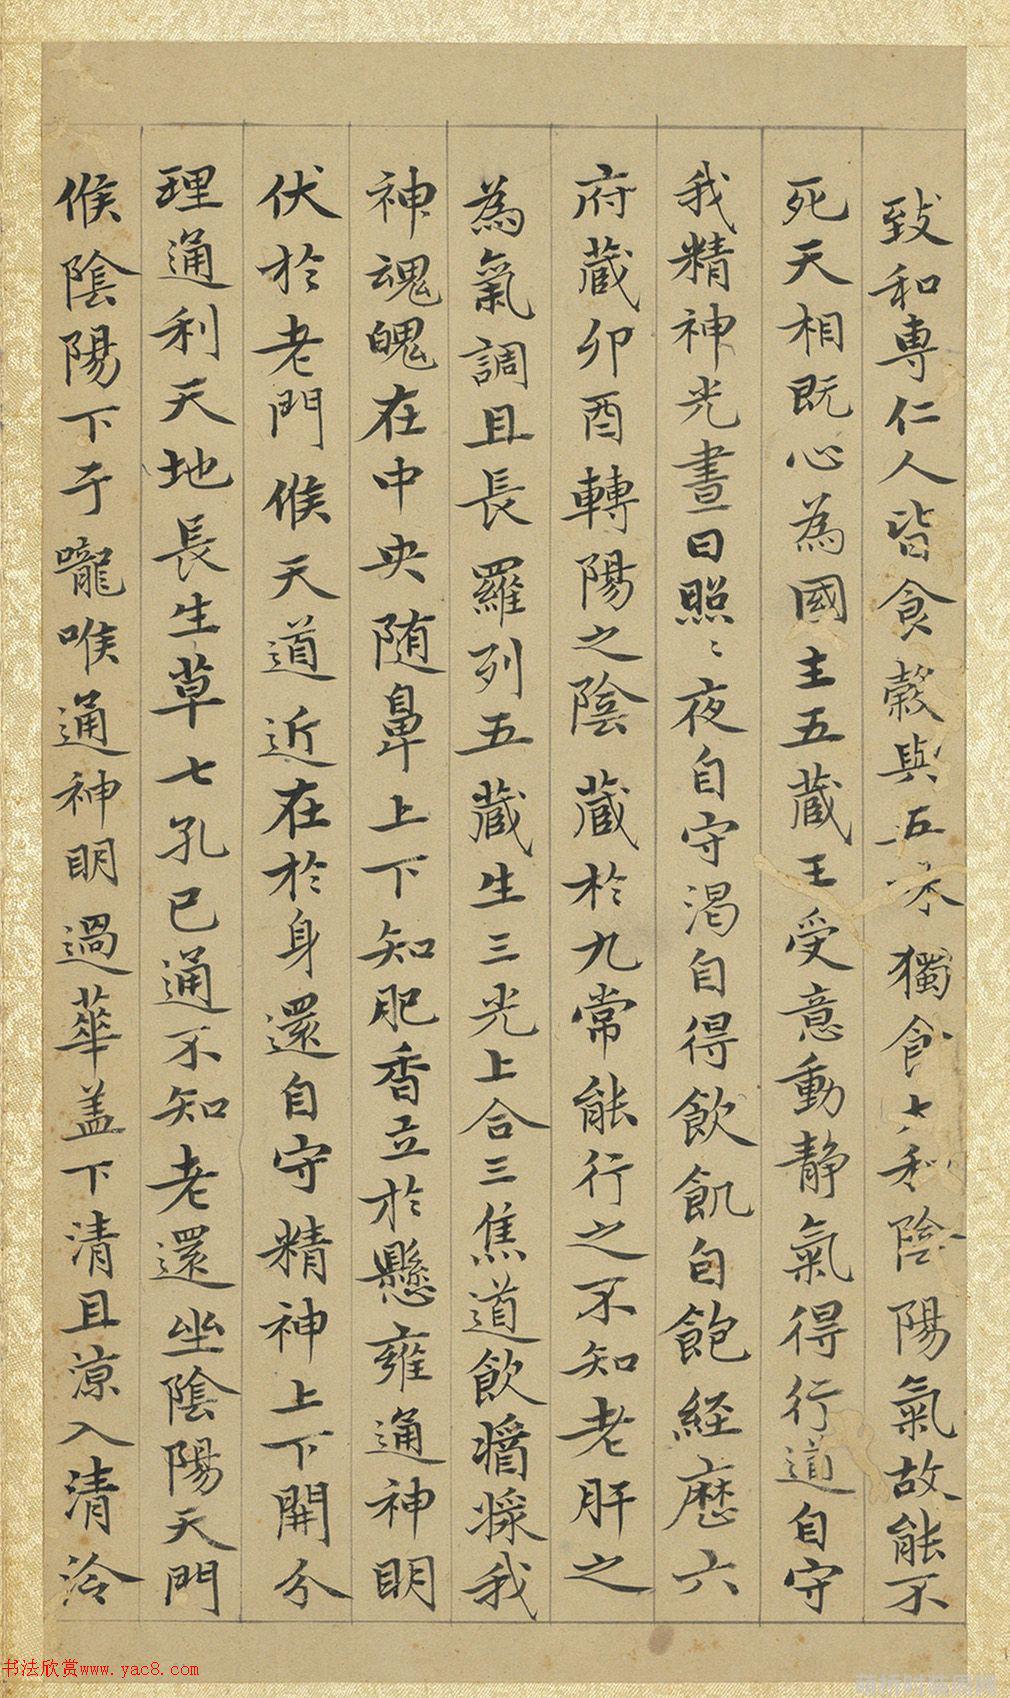 致和專仁人皆食穀與五味獨食太和陰陽氣故能不
死天相既心為國主五藏王受意動静氣得行道自守
我精神光晝日照〻夜自守渴自得飲飢自飽経歷六
府藏卯酉轉陽之陰藏於九常能行之不知老肝之
為氣調且長羅列五藏生三光上合三焦道飲醬漿我
神魂魄在中央随鼻上下知肥香立於懸雍通神明
伏於老門候天道近在於身還自守精神上下開分
理通利天地長生草七孔已通不知老還坐陰陽天門
候陰陽下于嚨喉通神明過華盖下清且涼入清泠
书法欣赏www.yac8.com